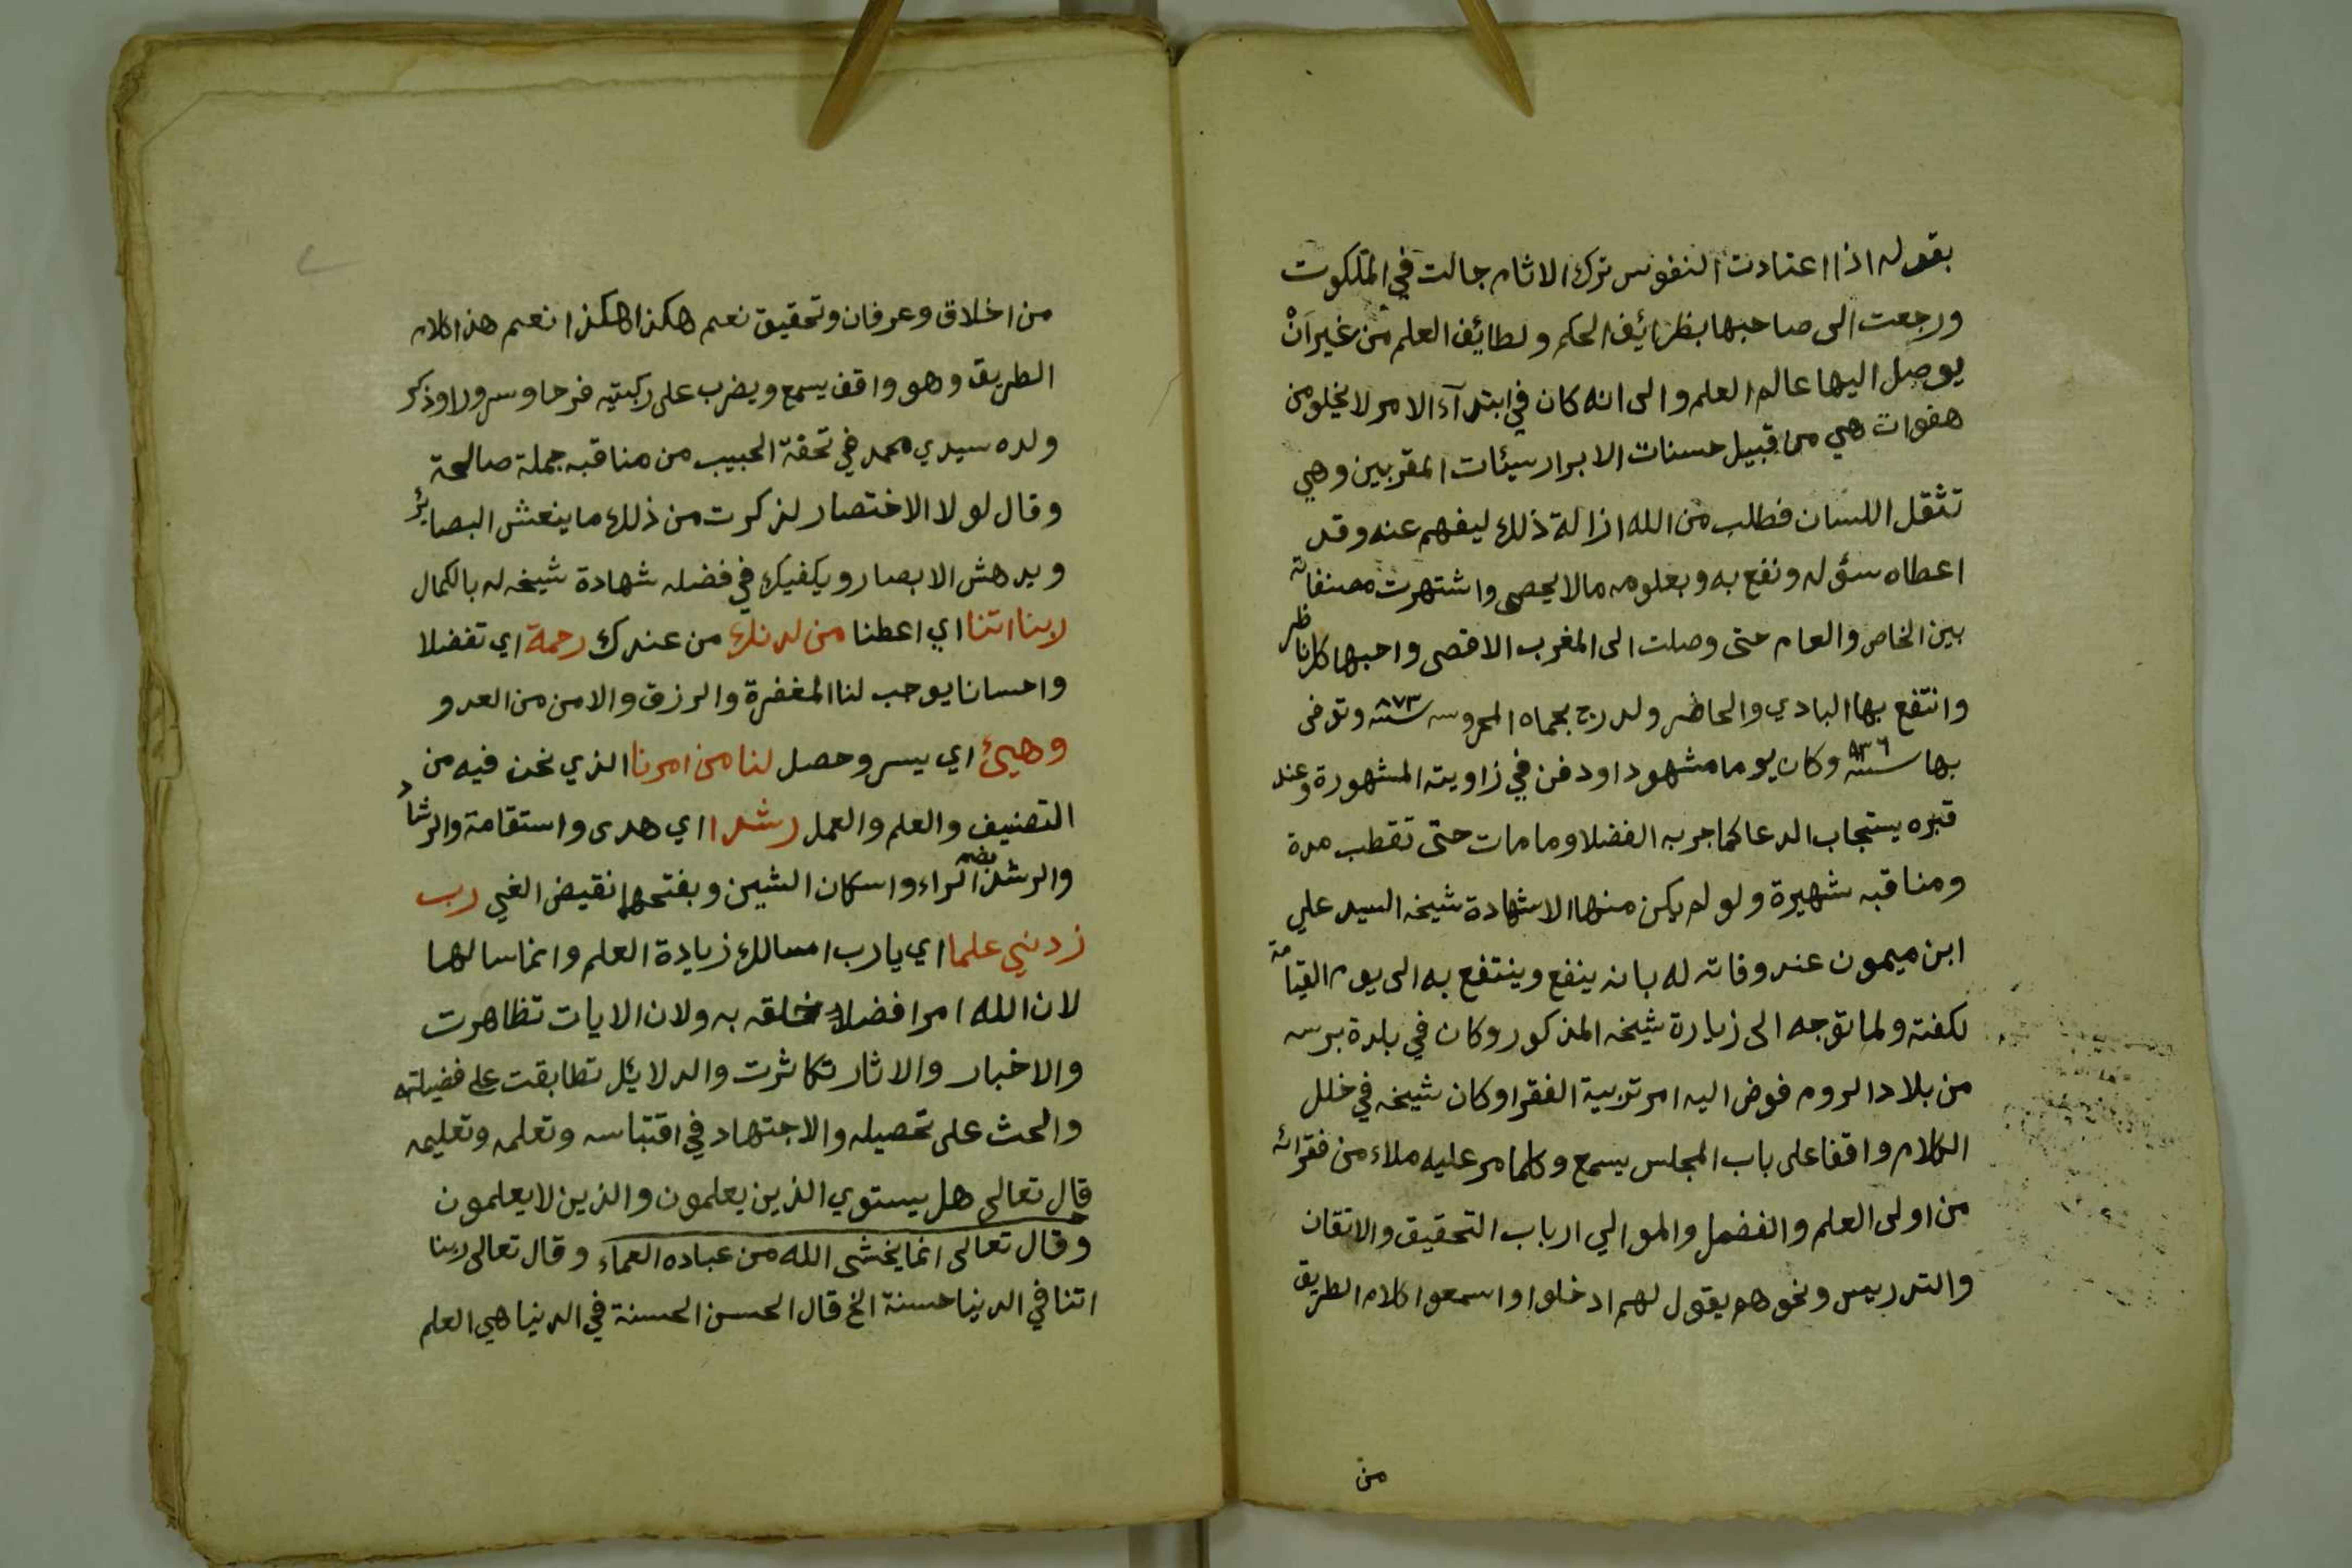 بقوله اذا اعتادت النفوس ترك الاثام جالت في الملكوت
ورجعت الى صاحبها بظرائف الحكم ولطائف العلم من غير اَنْ
يوصل اليها عالم العلم والى انه كان في ابتدآء الامر لا يخلو من
هفوات هي من قبيل حسنات الابرار سيئات المقربين وهي
تثقل اللسان فطلب من الله ازالة ذلك ليفهم عنه وقد
اعطاه سؤله ونفع به وبعلومه مالا يحصى واشتهرت مصنفاته
بين الخاص والعام حتى وصلت الى المغرب الاقصى واحبها كل ناظر
وانتفع بها البادي والحاضر ولد رح بحماه المحروسه سنة ٨٧٣ وتوفى
بها سنة ٩٣٦ وكان يوما مشهودا ودفن في زاويته المشهورة وعند
قبره يستجاب الدعا كما جربه الفضلا وما مات حتى تقطب مدة
ومناقبه شهيرة ولو لم يكن منها الا شهادة شيخه السيد علي
ابن ميمون عند وفاته له بانه ينفع وينتفع به الى يوم القيامة
لكفته ولما توجه الى زيارة شيخه المذكور وكان في بلدة برسه
من بلاد الروم فوض اليه امر تربية الفقرا وكان شيخه في خلل
الكلام واقفا على باب المجلس يسمع وكلما مر عليه ملاء من فقرائه
من اولى العلم والفضل والموالي ارباب التحقيق والاتقان
والتدريس ونحوهم يقول لهم ادخلوا واسمعوا كلام الطريق
من
من اخلاق وعرفان وتحقيق نعم هكذا هكذا نعم هذا كلام
الطريق وهو واقف يسمع ويضرب على ركبتيه فرحا وسرورا وذكر
ولده سيدي محمد في تحفة الحبيب من مناقبه جملة صالحة
وقال لولا الاختصار لذكرت من ذلك ما ينعش البصائر
ويدهش الابصار ويكفيك في فضله شهادة شيخه له بالكمال
ربنا اتنا اي اعطنا من لدنك من عندك رحمة اي تفضلا
واحسانا يوجب لنا المغفرة والرزق والامن من العدو
وهيئ اي يسر وحصل لنا من امرنا الذي نحن فيه من
التصنيف والعلم والعمل رشدا اي هدى واستقامة والرشاد
والرشد بضم الراء واسكان الشين وبفتحها نقيض الغي رب
زدني علما اي يا رب اسالك زيادة العلم وانما سالها
لان الله امر افضل خلقه به ولان الايات تظاهرت
والاخبار والاثار تكاثرت والدلائل تطابقت على فضيلته
والحث على تحصيله والاجتهاد في اقتباسه وتعلمه وتعليمه
قال تعالى هل يستوي الذين يعلمون والذين لا يعلمون
وقال تعالى انما يخشى الله من عباده العماء وقال تعالى ربنا
اتنا في الدنيا حسنة الخ قال الحسن الحسنة في الدنيا هي العلم